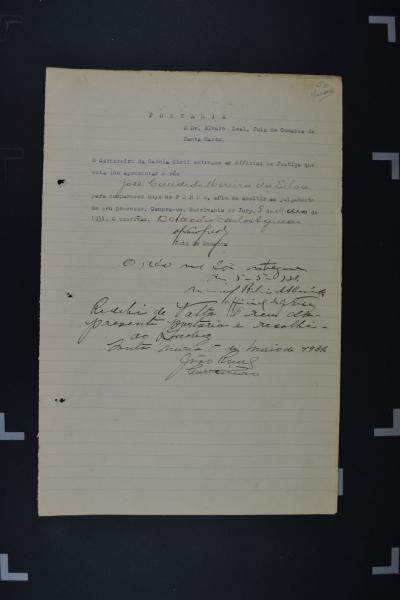 50
PORTARIA
O Dr. Alvaro Leal, Juiz de Comarca de
Santa Maria.
O Carcereiro da Cadeia Civil entregue ao Official de Justiça que
esta lhe apresentar o réo
José Candido Moreira da Silva
para comparecer hoje no FORUM, afim de assitir ao julgamento
de seu processo. Cumpra-se. Escrivania do Jury, 5 de Maio de
1931. O escrivão,
Juiz de Comarca
O réo me foi entregue
Em 5-5-931
Official de Justiça
Recibi de Volta o reu da
presente portaria e recolhi
ao
Santa Maria 5 de Maio de 1931
João
Carcereiro